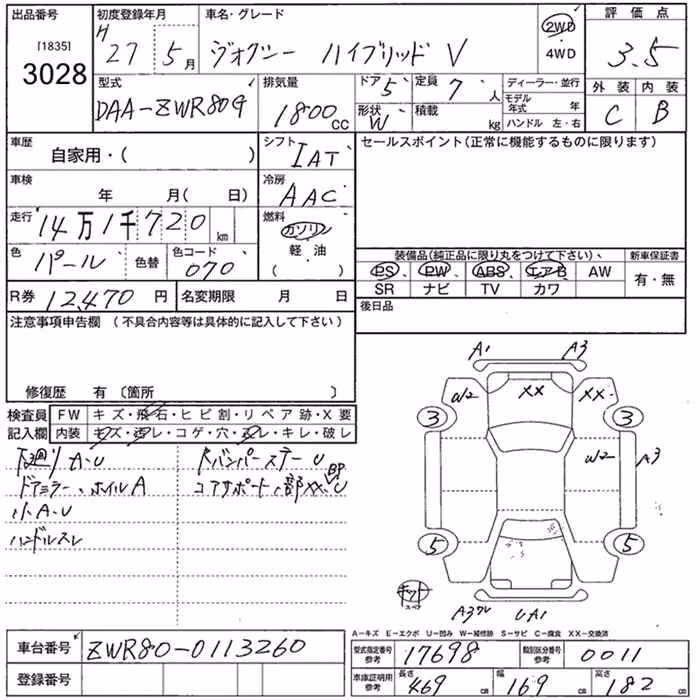 出品番号 初度登録年月 車名・グレード 評価点
[1835] H 27年 5月 ヴォクシー ハイブリッド V 2WD・4WD 3.5
3028
型式 排気量 ドア 5 定員 7人 ディーラー・並行 外装 内装
DAA-ZWR80G 1800cc 形状 W 積載 kg モデル年式 年 C B
ハンドル 左・右
車歴 自家用・( ) シフト IAT セールスポイント(正常に機能するものに限ります)
車検 年 月( 日) 冷房 AAC
走行 14万1千720km 燃料 ガソリン
軽・油
( ・ )
色 パール 色替 色コード 070 装備品(純正品に限り丸をつけて下さい) 新車保証書
PS PW ABS エアB AW 有・無
SR ナビ TV カワ
R券 12,470円 名変期限 月 日 後日品
注意事項申告欄(不具合内容等は具体的に記入して下さい)
修復歴 有〔箇所 〕
検査員 FW キズ・飛石・ヒビ割・リペア跡・X要
記入欄 内装 キズ・汚レ・コゲ・穴・スレ・キレ・破レ
下廻りA.U FバンパーステーU
ドアミラー、ホイルA コアサポート、部XX、BPU
小A.U
ハンドルスレ
A1 A3
W2 XX XX
3 3
W2 A3
5 5
キット
A3ワレ UA1
A-キズ E-エクボ U-凹み W-補修跡 S-サビ C-腐食 XX-交換済
車台番号 ZWR80-0113260 型式指定番号 参考 17698 類別区分番号 参考 0011
登録番号 車庫証明用 参考 長さ 469cm 幅 169cm 高さ 182cm